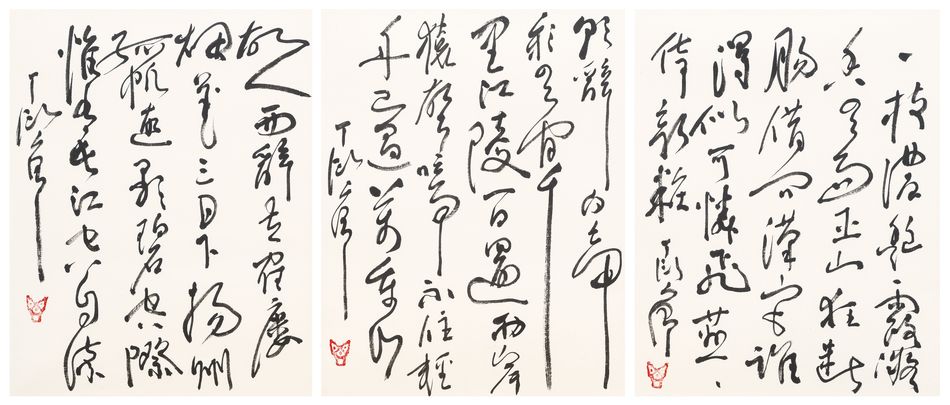 一枝濃艷露凝
香雲雨巫山枉斷
腸借問漢宮誰
得似可憐飛燕
倚新粧
朝辭白帝
彩雲間千
里江陵一日還兩岸
猿聲啼不住輕
舟已過萬重山
故人西辭黃
烟花三月下揚州
孤帆遠影碧空
惟見長江天流